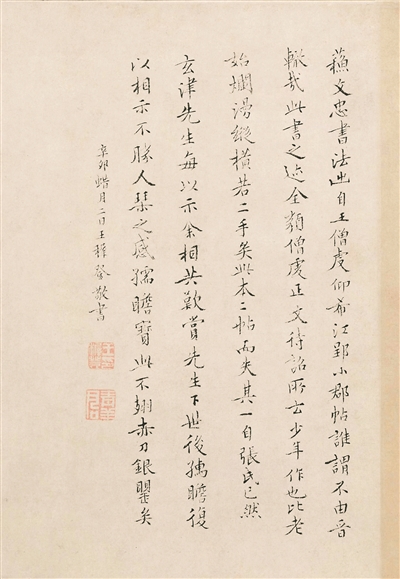 蘇文忠書法出自王僧虔仰希江郢小郡帖誰謂不由晉
轍哉此書之迹全類僧虔正文待詔所云少年作也比老
始爛漫縱橫若二手矣此本二帖而失其一自張氏已然
玄津先生每以示余相共歎賞先生下世後孺瞻復
以相示不勝人琴之感孺瞻寶此不翅赤刀銀罌矣
辛卯蜡月二日王穉登敬書